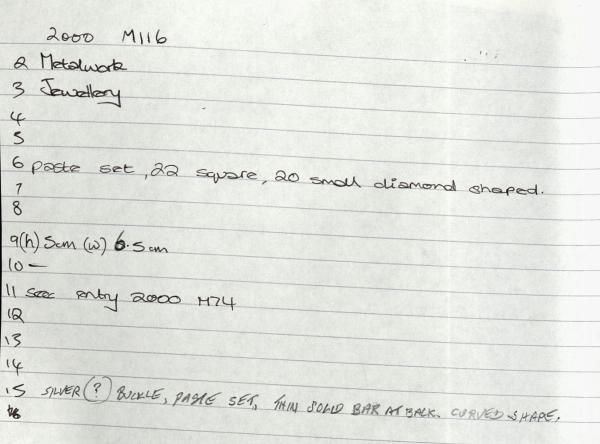 2000 M116
2 Metalwork
3 Jewellery
4
5
6 paste set, 22 square, 20 small diamond shaped.
7
8
9(h) 5cm (w) 6.5cm
10 —
11 see entry 2000 M74
12
13
14
15 SILVER (?) BUCKLE, PASTE SET, THIN SOLID BAR AT BACK. CURVED SHAPE.
16